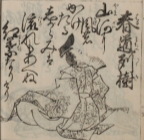 春道列樹
山川に
風の
かけ
たる
しからみは
流れもあへぬ
紅葉なりけり